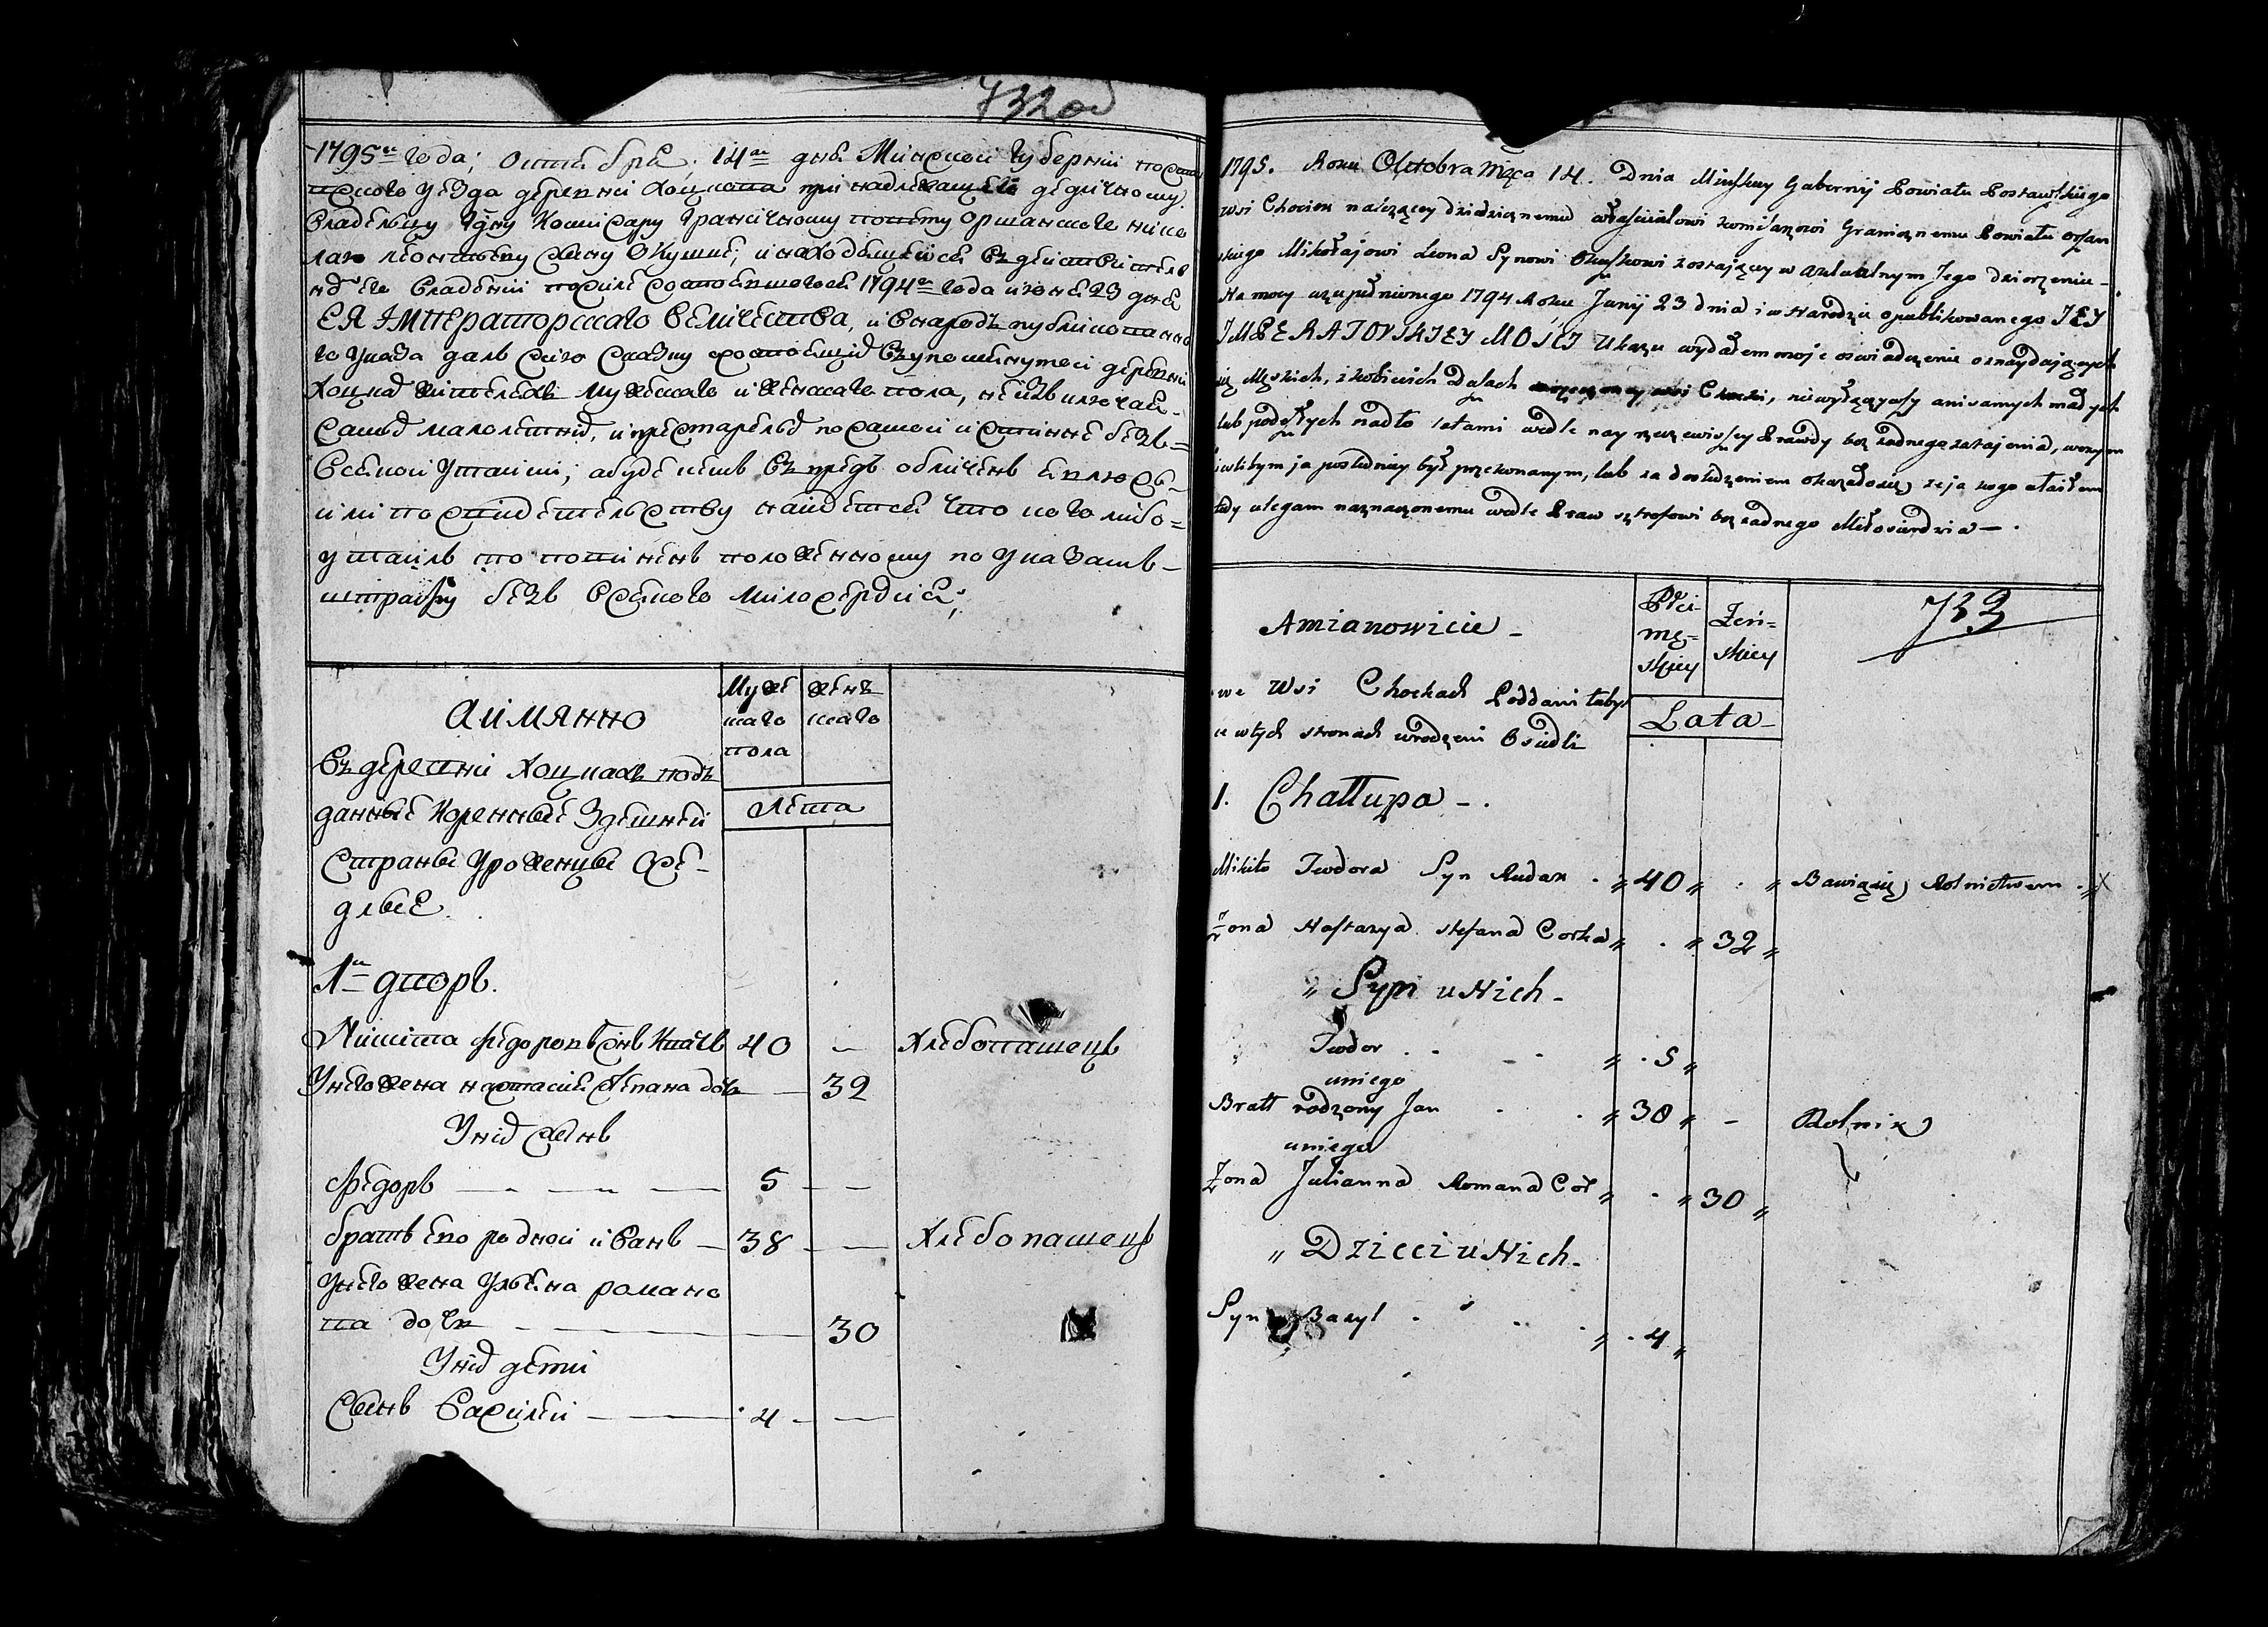 732 об
1795го года; октября; 14го дня Минской Губернии постав
скаго уезда деревни Хоцкова принадлежащего дедичному
владельцу Комисару граничному повету Оршанского нико
лаю леонтьеву сыну Окушке, и находящейся в действитель
но его владении после состоявшегося 1794го года июня 23 дня
ЕЯ ІМПЕраторскаго Величества, и в народ публикованна
го указа даль сию сказку о состоящих в упомянутой деревни
Хоцках жителях мужескаго и женскаго пола, не изключая
самых малолетних, и престарелых по самой истинне безъ=
всякой утайки; а буде кемъ в предь обличенъ явлюсь
или по свидетельству найдется что кого либо=
утаилъ то повиненъ положенному по указамъ
штрафу безъ всякого милосердия;
АИМЯННО
Муже
скаго
пола
женъ
скаго
Въ деревни Хоцкахъ подъ
данные коренные Здешней
Лета
Страны уроженцы осе-
длые
1й дворъ.
Никита Федоровъ сынъ 40 Хлебопашецъ
У него жена настасия Степана дочь 32
У них сынъ
Федоръ 5
братъ его родной иванъ 38 Хлебопашецъ
У него жена Ульяна романо
ва дочь 30
У них дети
Сынъ Василей 4
1795. Roku Oktobra Mąca 14. Dnia Minskiey Gubernij Powiatu Postawskiego
wsi Chociek należącey dziedzicznemu właścicielowi komisarzowi Granicznemu Powiatu Orszan
skiego Mikołajowi Leona Synowi Okuszkowi zostający w aktualnym Jego dzierzeniu
Na mocy uzupełnionego 1794 Roku Junij 23 dnia i w Narodzie opublikowanego JEY
IMPERATORSKIEY MOŚCI Ukazu wydałem moje oswiadczenie o znaydujących
się Męskich, i kobiecich Dusach wsi Chocki, niewyłączając ani samych małych
lub podeszłych nadto latami wedle nayrzeczewistszey Prawdy bez żadnego zatajenia, w czym
jeslibym ja posledniey był przekonanym, lub za dosledzeniem okazałosię, że ja kogo utaiłem
tedy ulegam naznaczonemu wedle Praw sztrofowi bez żadnego Miłosierdzia—.
Amianowicie -
Płci
mę-
skiey
Żeń-
skiey
733
we Wsi Chockach Poddani tuby
Lata
w tych stronach urodzeni Osiedli
1. Chattupa -.
Mikito Teodora Syn Rudak 40 Bawiąsię Rolnictwem X
Żona Nastazya Stefana Corka 32
Syn u Nich -
Teodor 5
u niego
Bratt rodzony Jan 38 Rolnik
u niego
Żona Julianna Romana Cor 30
Dzieci u Nich -
Syn Bazyl 4